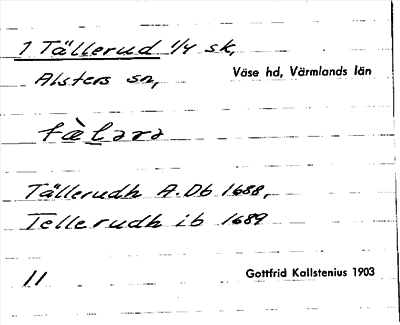 1 Tällerud 1/4 sk,
Alsters sn,
Väse hd, Värmlands län
tæ̀lərə
Tällerudh A.Db 1688,
Tellerudh ib 1689
11
Gottfrid Kallstenius 1903